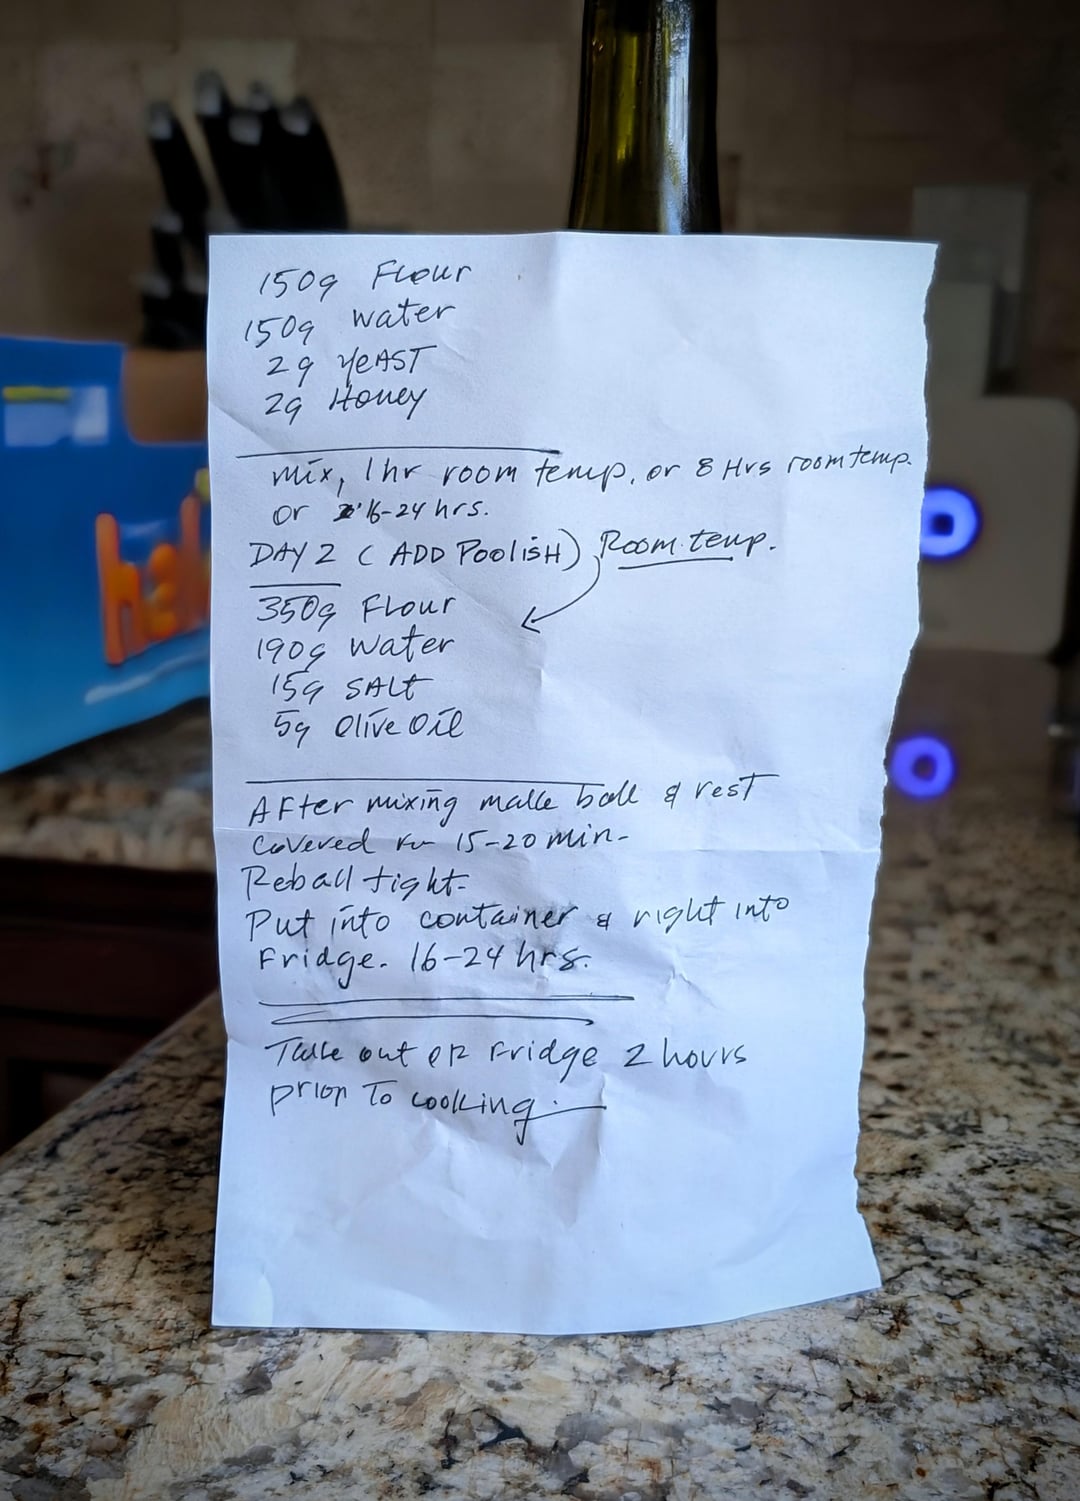 150g Flour
150g water
2g yeAST
2g Honey
mix, 1hr room temp. or 8 Hrs room temp.
or 16-24 hrs.
DAY 2 ( ADD POOLISH) Room temp.
350g FLour
190g Water
15g SALt
5g Olive Oil
AFter mixing make ball & rest
covered for 15-20 min-
Reball tight-
Put into container & right into
Fridge. 16-24 hrs.
Take out of Fridge 2 hours
prior To cooking.